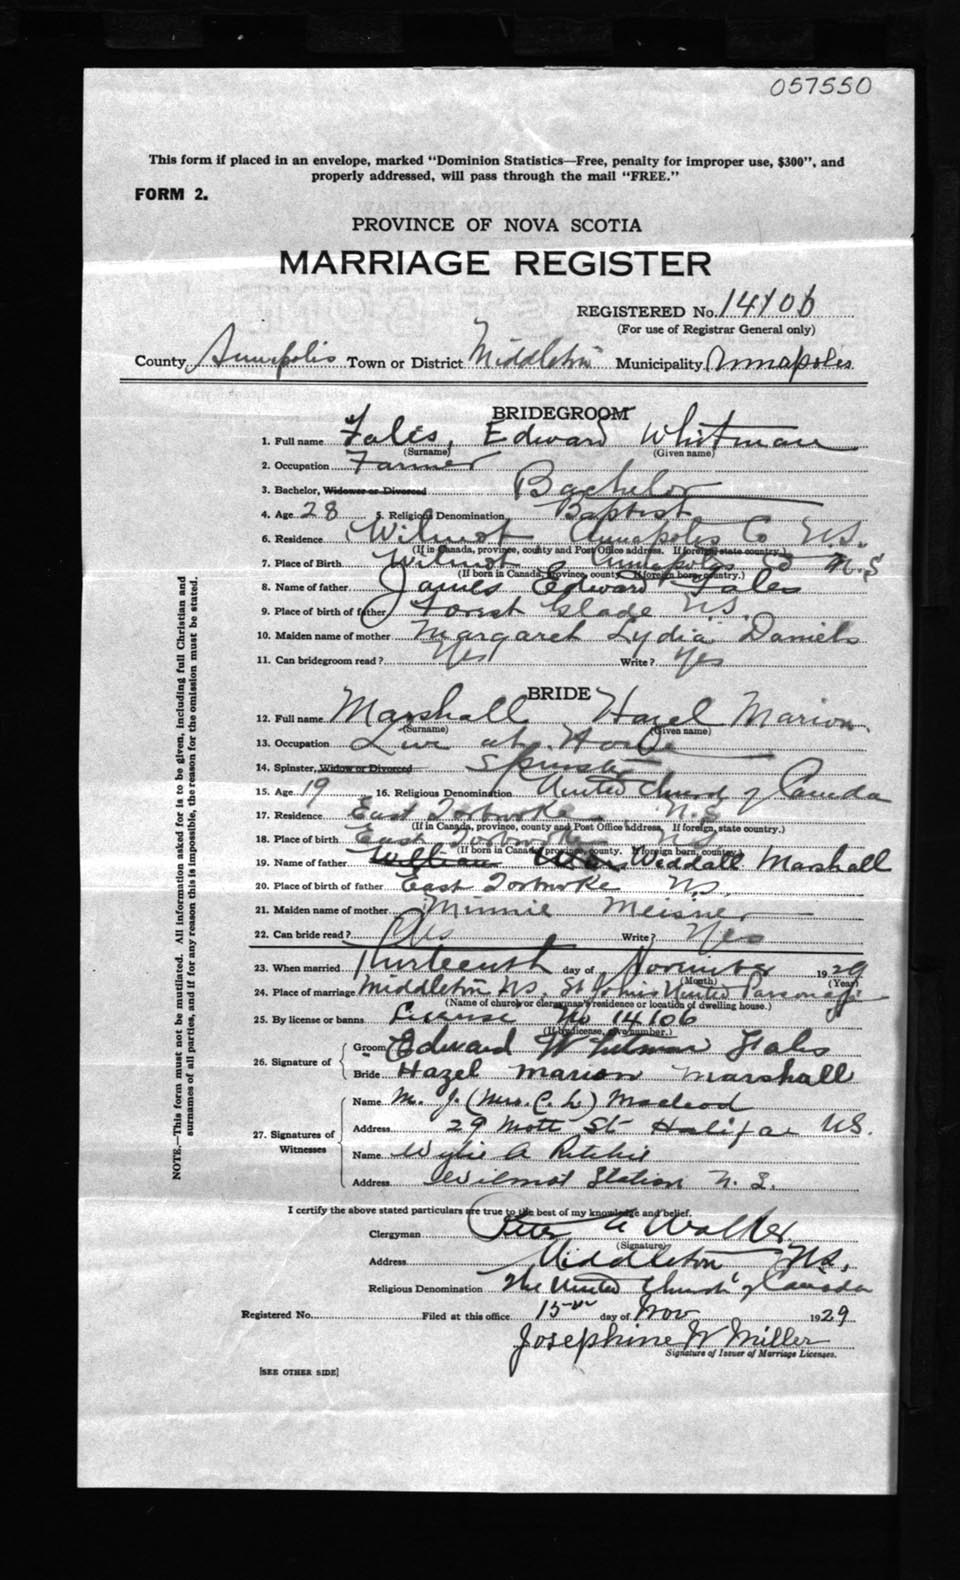 057550
This form if placed in an envelope, marked "Dominion Statistics—Free, penalty for improper use, $300", and
properly addressed, will pass through the mail "FREE."
FORM 2.
PROVINCE OF NOVA SCOTIA
MARRIAGE REGISTER
REGISTERED No. 14106
(For use of Registrar General only)
County Annapolis Town or District Middleton Municipality Annapolis
BRIDEGROOM
1. Full name Fales, Edward Whitman
(Surname) (Given name)
2. Occupation Farmer
3. Bachelor, Widower or Divorced Bachelor
4. Age 28 5. Religious Denomination Baptist
6. Residence Wilmot Annapolis Co N.S.
(If in Canada, province, county and Post Office address. If foreign, state country.)
7. Place of Birth Wilmot Annapolis Co N.S
(If born in Canada, province, county. If foreign born, country.)
8. Name of father James Edward Fales
9. Place of birth of father Forest Glade N.S.
10. Maiden name of mother Margaret Lydia Daniels
11. Can bridegroom read? Yes Write? Yes
BRIDE
12. Full name Marshall Hazel Marion
(Surname) (Given name)
13. Occupation Live at Home
14. Spinster, Widow or Divorced Spinster
15. Age 19 16. Religious Denomination United Church of Canada
17. Residence East Torbrooke N.S
(If in Canada, province, county and Post Office address, If foreign, state country.)
18. Place of birth East Torbrooke N.S
(If born in Canada, province, county. If foreign born, country.)
19. Name of father William Weddall Marshall
20. Place of birth of father East Torbroke N.S.
21. Maiden name of mother Minnie Meisner
22. Can bride read? Yes Write? Yes
23. When married Thirteenth day of November 1929
(Month) (Year)
24. Place of marriage Middleton NS, St Johns United Parsonage
(Name of church or clergyman's residence or location of dwelling house.)
25. By license or banns License No 14106
(If by license, give number.)
26. Signature of Groom Edward Whitman Fales
Bride Hazel Marion Marshall
27. Signatures of Witnesses
Name M. J. (Mrs. C. L) Macleod
Address 29 Mott St Halifax N.S.
Name Wylie A Ritchie
Address Wilmot Station N. S.
I certify the above stated particulars are true to the best of my knowledge and belief.
Clergyman Peter A Walker
(Signature)
Address Middleton NS.
Religious Denomination The United Church of Canada
Registered No. Filed at this office 15 day of Nov 1929
Josephine W Miller
Signature of Issuer of Marriage Licenses.
[SEE OTHER SIDE]
NOTE.—This form must not be mutilated. All information asked for is to be given, including full Christian and
surnames of all parties, and if for any reason this is impossible, the reason for the omission must be stated.